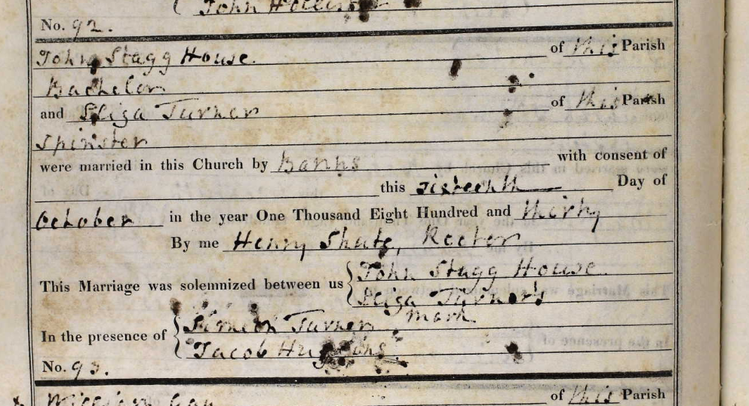 John Hollister
No. 92.
John Stagg House. of this Parish
Bachelor
and Eliza Turner of this Parish
Spinster
were married in this Church by Banns with consent of
this sixteenth Day of
October in the year One Thousand Eight Hundred and thirty
By me Henry Shute, Rector
This Marriage was solemnized between us { John Stagg House
Eliza Turner's
mark
In the presence of { Simeon Turner
Jacob Huggins
No. 93.
William Gay of this Parish